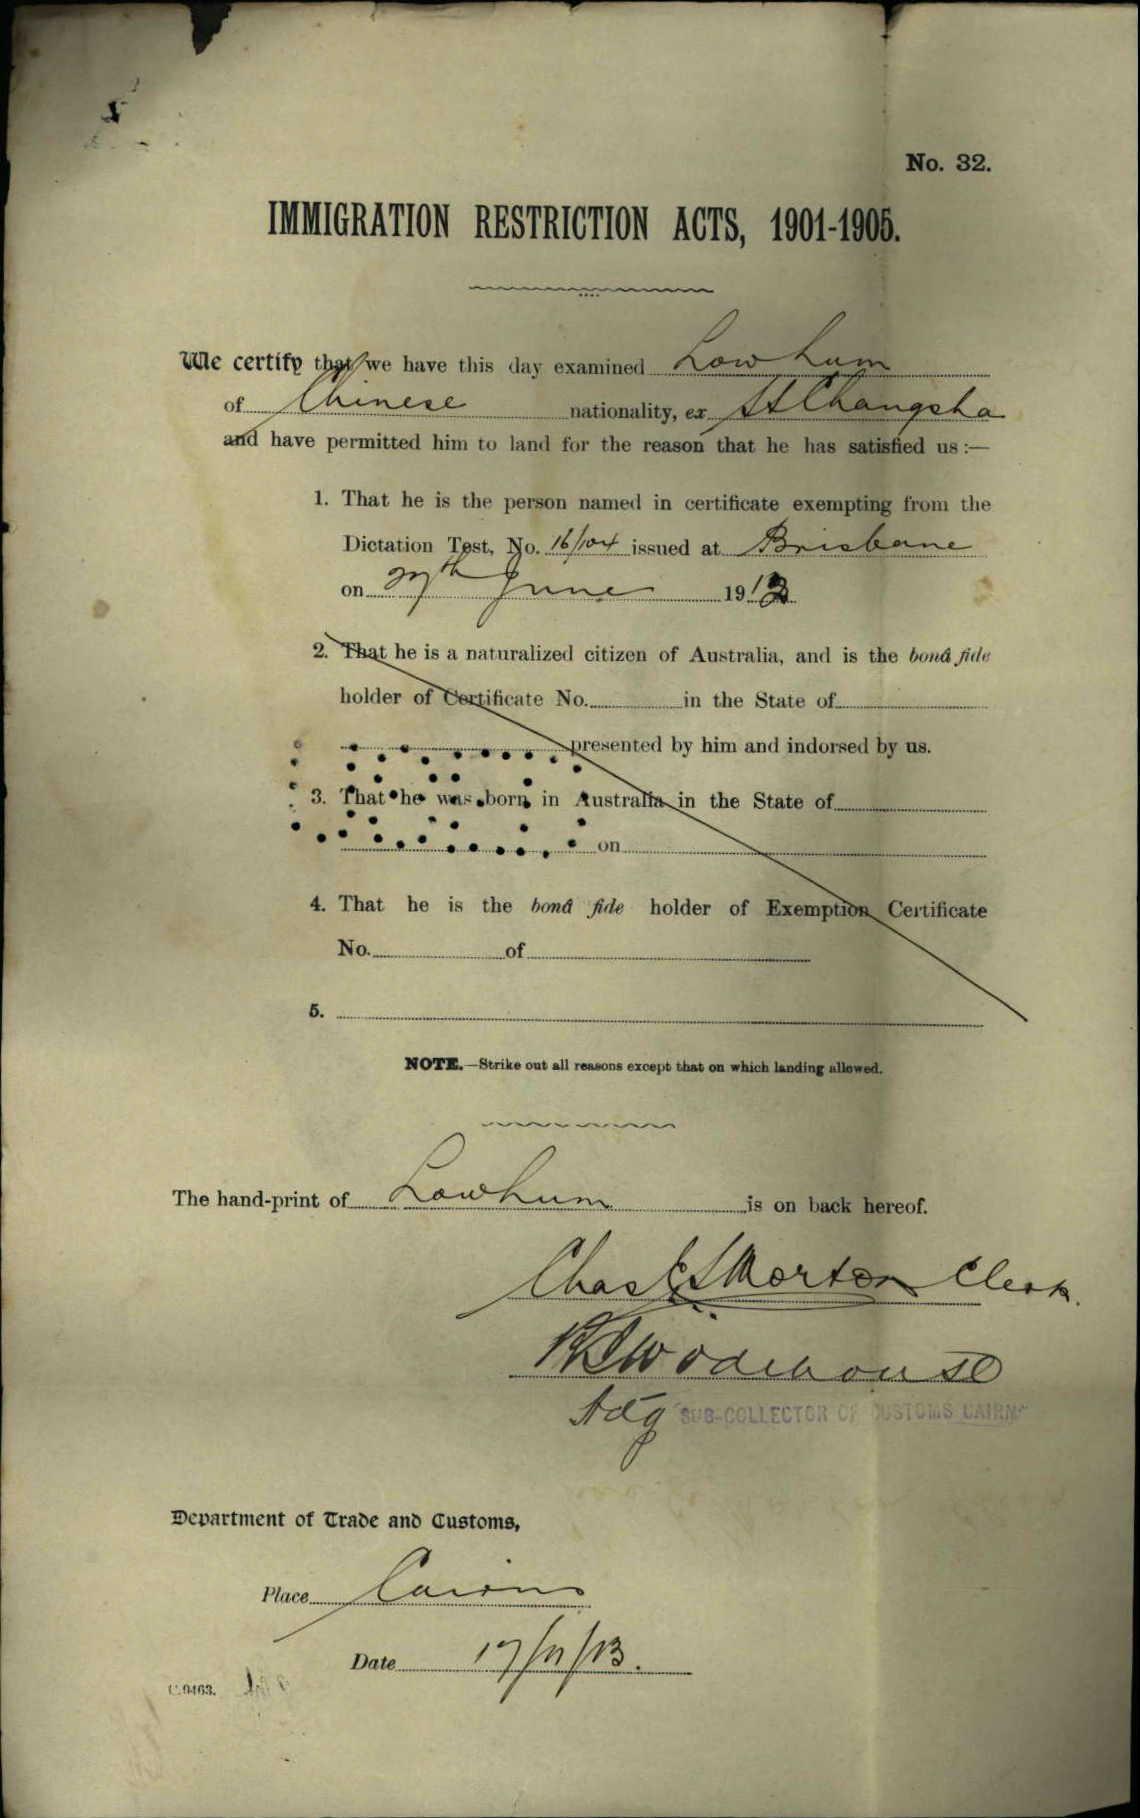 No. 32.
IMMIGRATION RESTRICTION ACTS, 1901-1905.
We certify that we have this day examined Low Lum
of Chinese nationality, ex SS Changsha
and have permitted him to land for the reason that he has satisfied us :—
1. That he is the person named in certificate exempting from the
Dictation Test, No. 16/104 issued at Brisbane
on 27th June 1912
2. That he is a naturalized citizen of Australia, and is the bonâ fide
holder of Certificate No. in the State of
presented by him and indorsed by us.
3. That he was born in Australia in the State of
on
4. That he is the bonâ fide holder of Exemption Certificate
No. of
5.
NOTE.—Strike out all reasons except that on which landing allowed.
The hand-print of Low Lum is on back hereof.
Chas Morton Clerk.
Wodehouse
Actg SUB-COLLECTOR OF CUSTOMS CAIRNS
Department of Trade and Customs,
Place Cairns
Date 17/11/13.
C.9463.